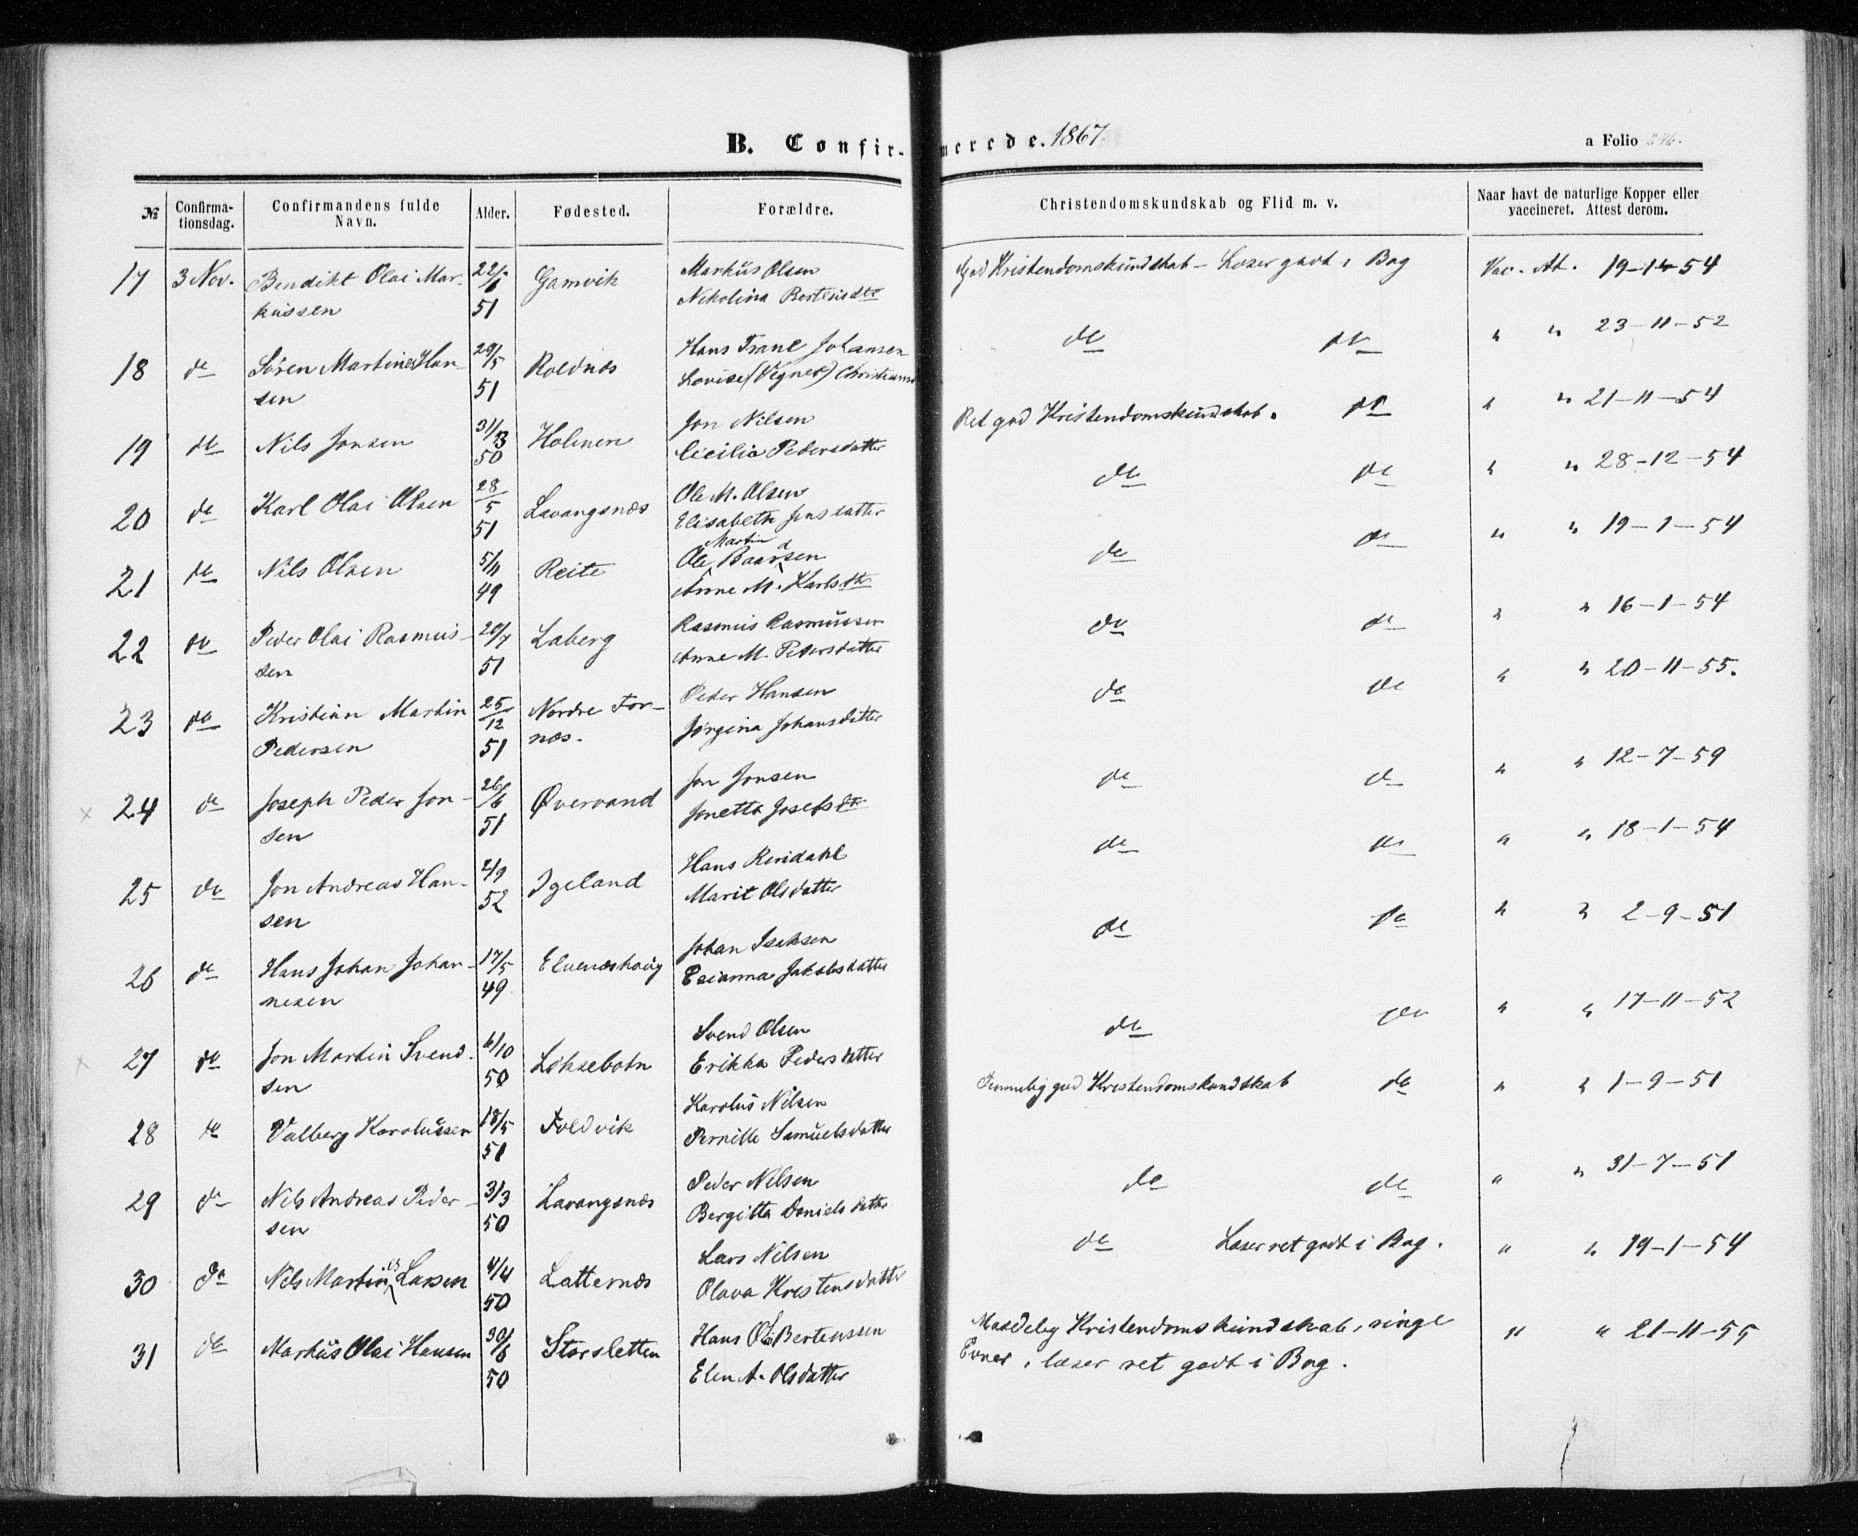 B. Confir-merede. 1867.
a Folio 246.
№ Confirma-tionsdag. Confirmandens fulde Navn. Alder. Fødested. Forældre. Christendomskundskab og Flid m. v. Naar havt de naturlige Kopper eller vaccineret. Attest derom.
17 3 Nov. Bendikt Olai Mar-kussen 22/6 51 Gamvik Markus Olsen Nikolina Berteusdtr God Kristendomskundskab - Læser godt i Bog Vac. At. 19-1-54
18 do Søren Martines Han-sen 20/5 51 Roldnæs Hans Trane Johansen Lovise (Vegner) Christiansd do do " " 23-11-52
19 do Nils Jonsen 31/3 50 Holmen Jon Nilsen Cicilia Pedersdatter Ret god Kristendomskundskab. do " " 21-11-54
20 do Karl Olai Olsen 28/5 51 Lavangsnæs Ole M. Olsen Elisabeth Jensdatter do do " " 28-12-54
21 do Nils Olsen 5/11 49 Reite Ole Martin Baardsen Anne M. Karlsdtr do do " " 19-1-54
22 do Peder Olai Rasmus-sen 20/7 51 Laberg Rasmus Rasmussen Anne M. Petersdatter do do " " 16-1-54
23 do Kristian Martin Pedersen 25/12 51 Nordre For-næs. Peder Hansen Jørgina Johansdatter do do " " 20-11-55.
× 24 do Joseph Peder Jon-sen 26/6 51 Øvervand Jon Jonsen Jonetta Josefsdtr do do " " 12-7-59
25 do Jon Andreas Han-sen 2/9 52 Igeland Hans Rendahl Marit Olsdatter do do " " 18-1-54
26 do Hans Johan Johan-nesen 17/5 49 Elvenæshoug Johan Isaksen Esianna Jakobsdatter do do " " 2-9-51
× 27 do Jon Martin Svend-sen 6/10 50 Løksebotn Svend Olsen Erikka Pedersdatter do do " " 17-11-52
28 do Valberg Karolussen 18/5 51 Foldvik Karolus Nilsen Pernille Samuelsdatter Temmelig god Kristendomskundskab do " " 1-9-51
29 do Nils Andreas Peder-sen 3/3 50 Lavangsnæs Peder Nilsen Bergitta Danielsdatter do do " " 31-7-51
30 do Nils Martinus Larsen 4/4 50 Latternæs Lars Nilsen Olava Kristensdatter do Læser ret godt i Bog. " " 19-1-54
31 do Markus Olai Hansen 30/6 50 Storsletten Hans Ol. Bertenssen Elen A. Olsdatter Maadelig Kristendomskundskab, ringe Evner, læser ret godt i Bog. " " 21-11-55